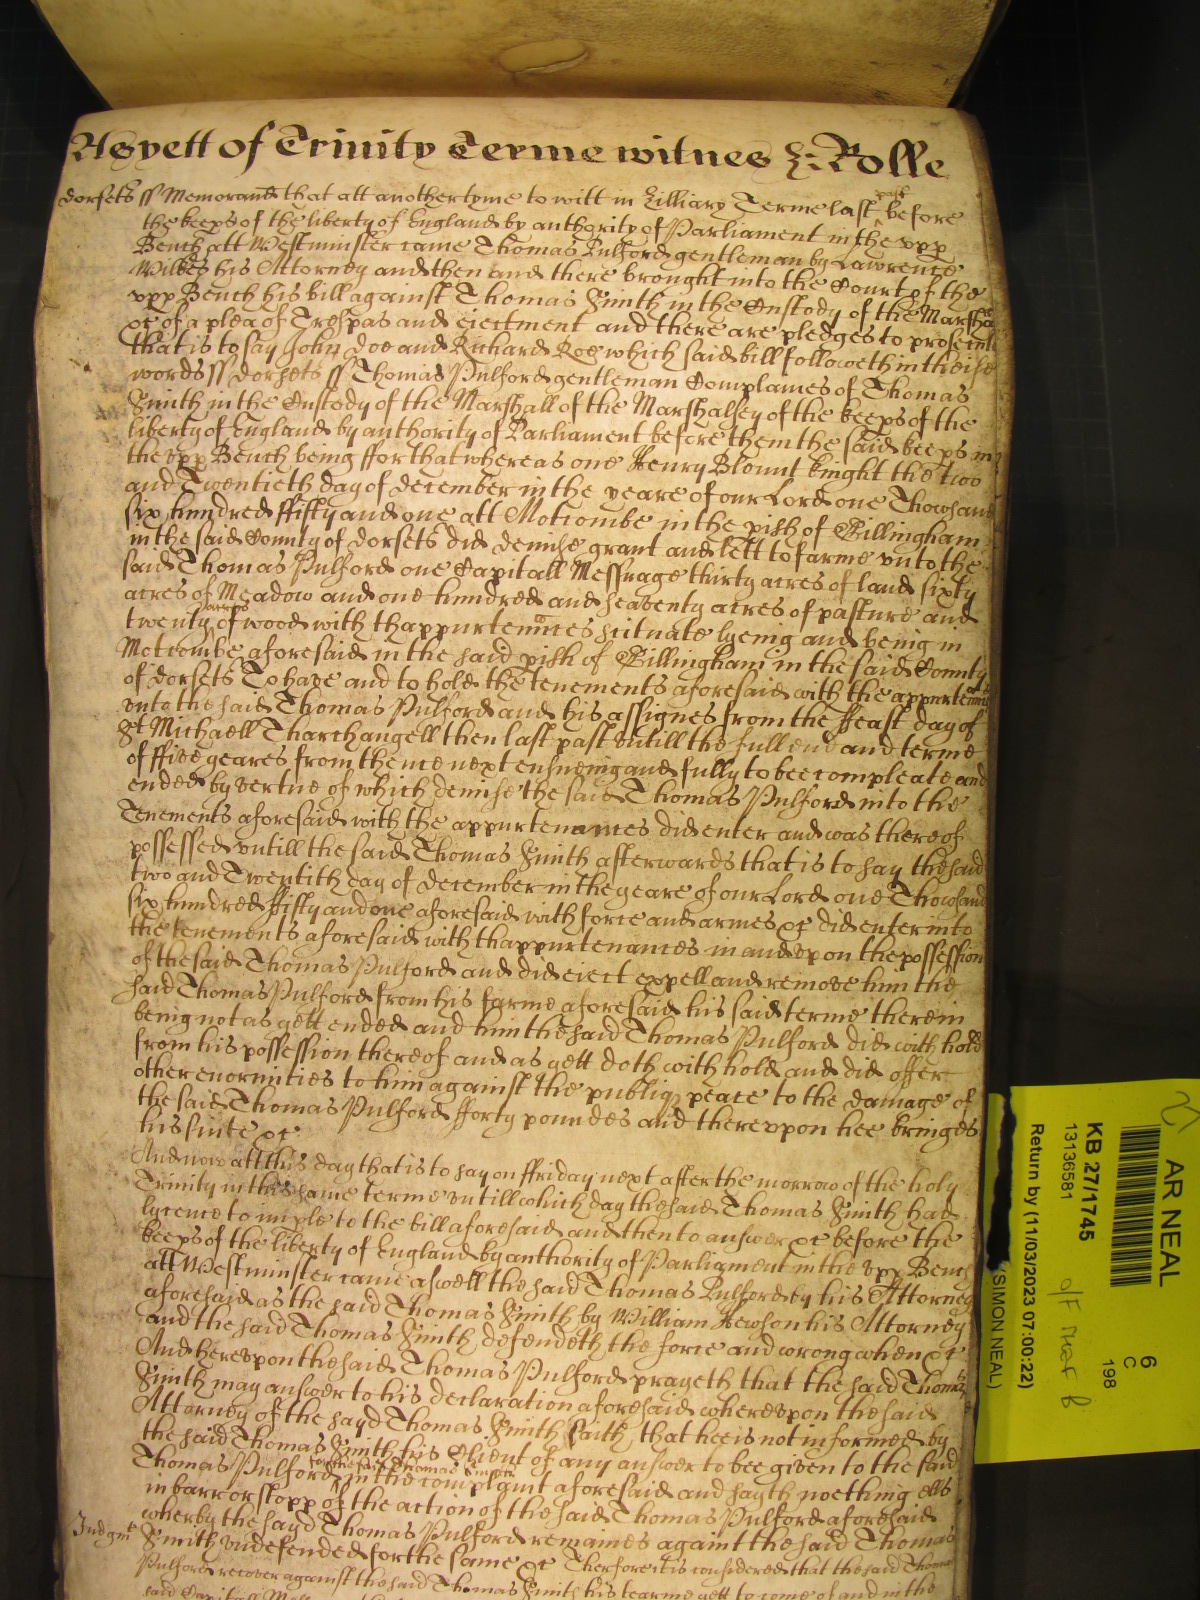 As yett of Trinity Terme witnes H: Rolle
Dorsets ss Memorand that att another tyme to witt in Hilliary Terme last past before
the keeps of the liberty of England by authority of Parliament in the vpp
Bench att Westminster came Thomas Pulford gentleman by Lawrence
Wilkes his Attorney and then and there brought into the Court of the
vpp Bench his bill against Thomas Smith in the Custody of the Marsha
&c of a plea of Trespas and eiectment and there are pledges to prosecute
that is to say John Doe and Richard Roe which said bill followeth in theise
words ss Dorsets ss Thomas Pulford gentleman Complaines of Thomas
Smith in the Custody of the Marshall of the Marshalsey of the keeps of the
liberty of England by authority of Parliament before them the said keeps in
the vpp Bench being ffor that whereas one Henry Blount knight the two
and Twentieth day of December in the yeare of our Lord one Thowsand
six hundred ffifty and one att Motcombe in the pish of Gillingham
in the said County of Dorsets did demise grant and lett to farme vnto the
said Thomas Pulford one Capitall Messuage thirty acres of land sixty
acres of Meadow and one hundred and seaventy acres of pasture and
twenty acres of wood with thappurtenances scituate lyeing and being in
Motcombe aforesaid in the said pish of Gillingham in the said County
of Dorsets To have and to hold the tenements aforesaid with the appurtenncs
vnto the said Thomas Pulford and his assignes from the ffeast day of
St Michaell Tharchangell then last past vntill the full end and terme
of ffive yeares from thence next ensueing and fully to bee compleate and
ended by vertue of which demise the said Thomas Pulford into the
Tenements aforesaid with the appurtenances did enter and was thereof
possessed vntill the said Thomas Smith afterwards that is to say the said
two and Twentith day of December in the yeare of our Lord one Thowsand
six hundred ffifty and one aforesaid with force and armes &c did enter into
the tenements aforesaid with thappurtenances in and vpon the possession
of the said Thomas Pulford and did eiect expell and remove him the
said Thomas Pulford from his farme aforesaid his said terme therein
being not as yett ended and him the said Thomas Pulford did with hold
from his possession thereof and as yett doth with hold and did offer
other enormities to him against the publiq peace to the damage of
the said Thomas Pulford fforty poundes and therevpon hee bringes
his suite &c
And now att this day that is to say on ffriday next after the morrow of the holy
Trinity in this same terme vntill which day the said Thomas Smith had
lycence to imple to the bill aforesaid and then to answer &c before the
keeps of the liberty of England by authority of Parliament in the vpp Bench
att Westminster came aswell the said Thomas Pulford by his Attorney
aforesaid as the said Thomas Smith by William Hewson his Attorney
and the said Thomas Smith defendeth the force and wrong when &c
And herevpon the said Thomas Pulford prayeth that the said Thomas
Smith may answer to his declaration aforesaid wherevpon the said
Attorney of the sayd Thomas Smith saith that hee is not informed by
the said Thomas Smith his Client of any answer to bee given to the said
Thomas Pulford for the said Thomas Smith in the complaint aforesaid and sayth noething ells
in barr or stopp of the action of the said Thomas Pulford aforesaid
wherby the sayd Thomas Pulford remaines against the said Thomas
Judgmt Smith vndefended for the same &c Therfore it is considered that the said Thomas
Pulford recover against the said Thomas Smith his tearme yett to come of and in the
said Capitall
AR NEAL
KB 27/1745
13136581
Return by (11/03/2023 07:00:22)
(SIMON NEAL)
6
C
198